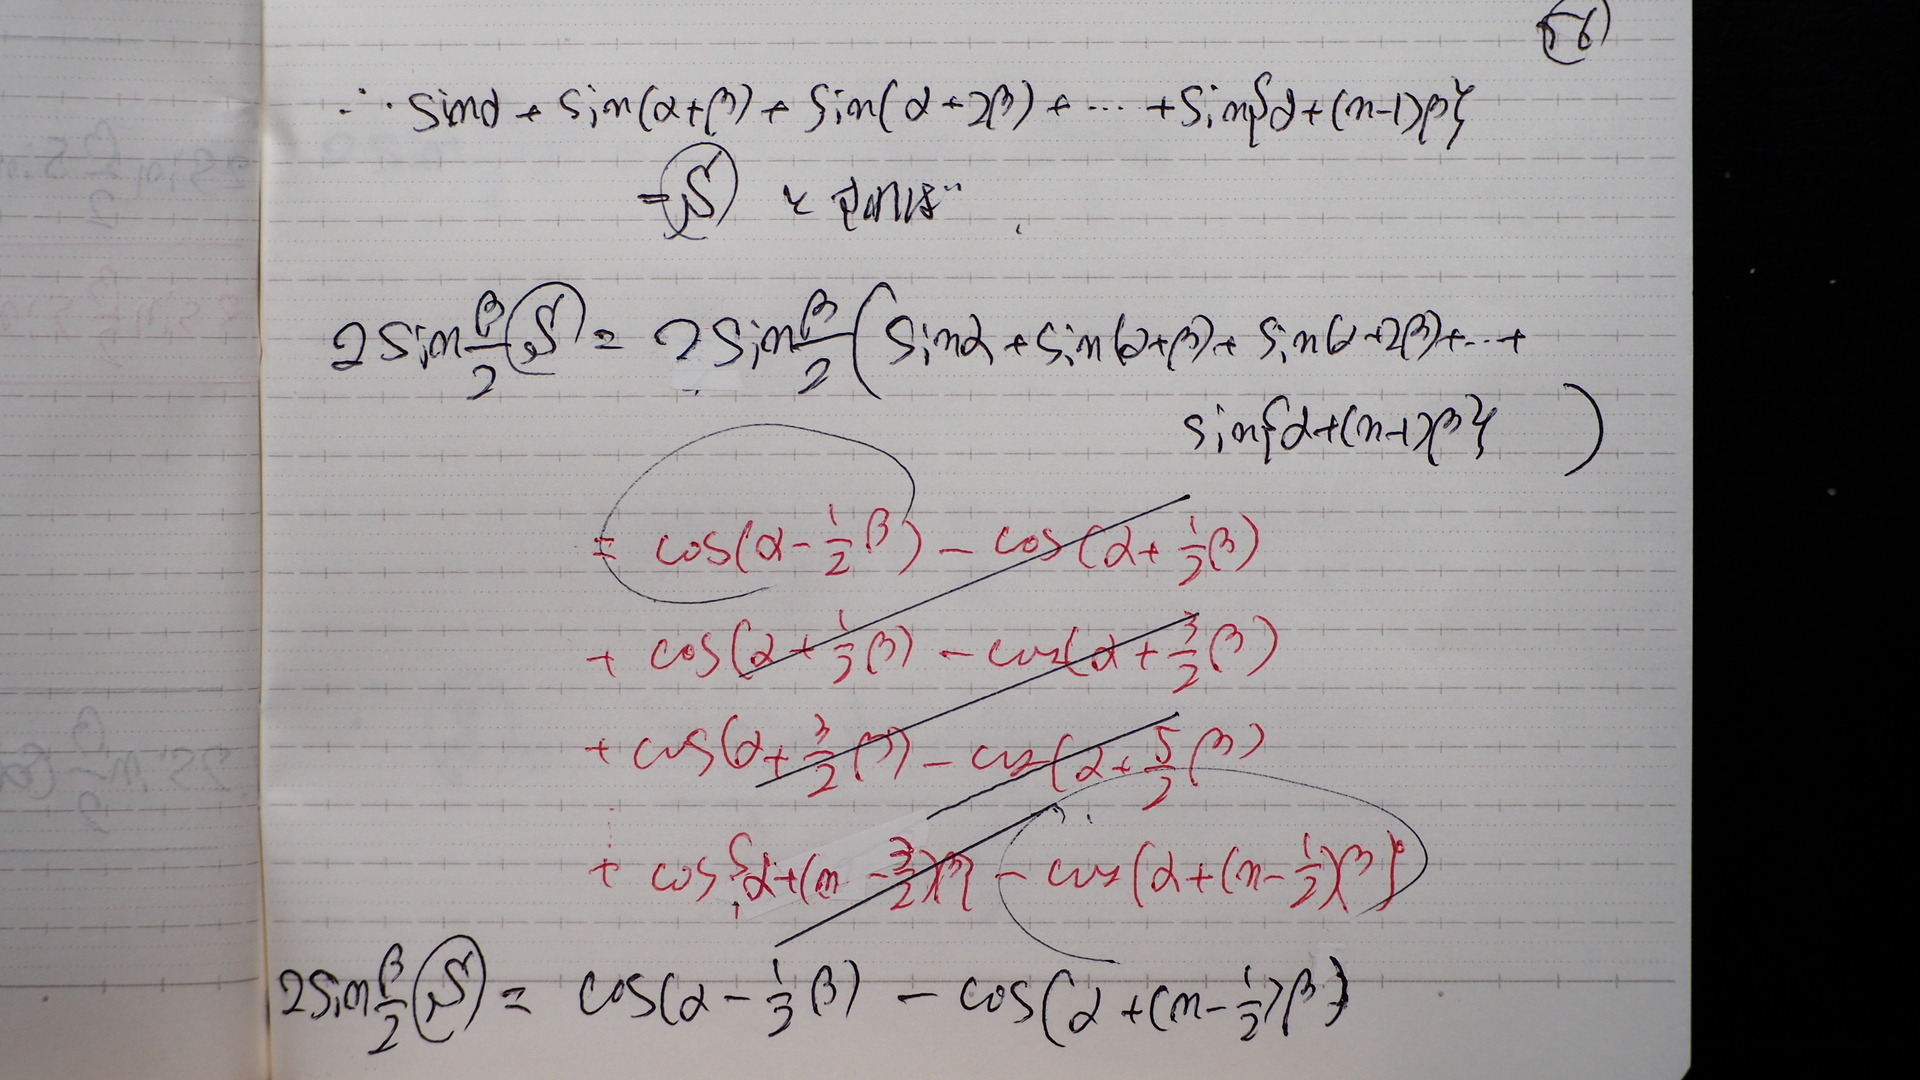 56
∴ sinα + sin(α+β) + sin(α+2β) + ‥‥ + sin{α+(n-1)β}
= S とすれば
2sin β/2 S = 2sin β/2 ( sinα + sin(α+β) + sin(α+2β) + ‥‥ +
sin{α+(n-1)β} )
= cos(α - 1/2 β) - cos(α + 1/2 β)
+ cos(α + 1/2 β) - cos(α + 3/2 β)
+ cos(α + 3/2 β) - cos(α + 5/2 β)
+ cos{α+(n - 3/2)β} - cos{α+(n - 1/2)β}
2sin β/2 S = cos(α - 1/2 β) - cos{α+(n - 1/2)β}